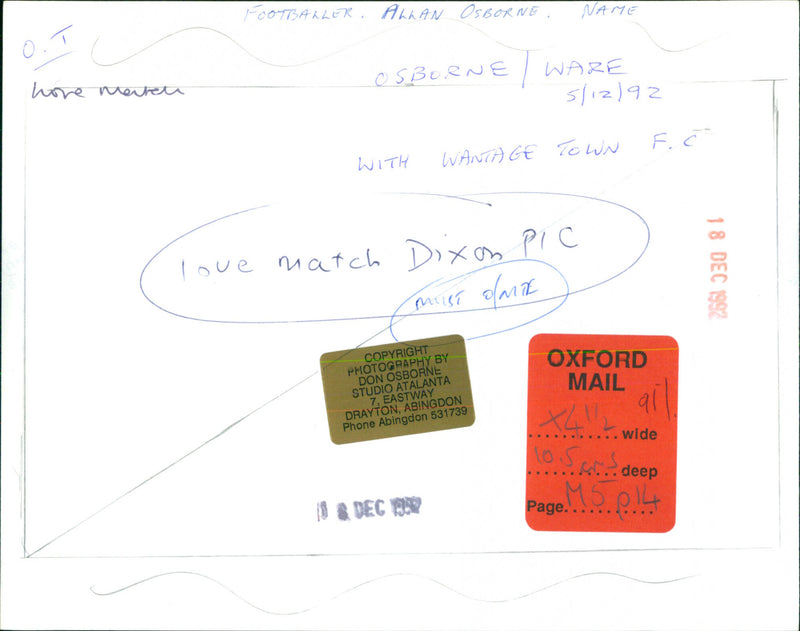 FOOTBALLER. ALLAN OSBORNE. NAME
O.I
Love Match
OSBORNE / WARE
5/12/92
WITH WANTAGE TOWN F.C
love match Dixon PIC
MUST
18 DEC 1992
COPYRIGHT
PHOTOGRAPHY BY
DON OSBORNE
STUDIO ATALANTA
7, EASTWAY
DRAYTON, ABINGDON
Phone Abingdon 531739
OXFORD
MAIL
91%
wide
10.5 cms deep
Page M5 p14
18 DEC 1992